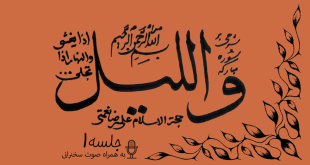 بسم الله الرحمن الرحیم
واللیل
اذا یغشی
والنهار اذا
تجلی...
حجة الاسلام علیرضا نعمتی
جلسه ۱
به همراه صوت سخنرانی